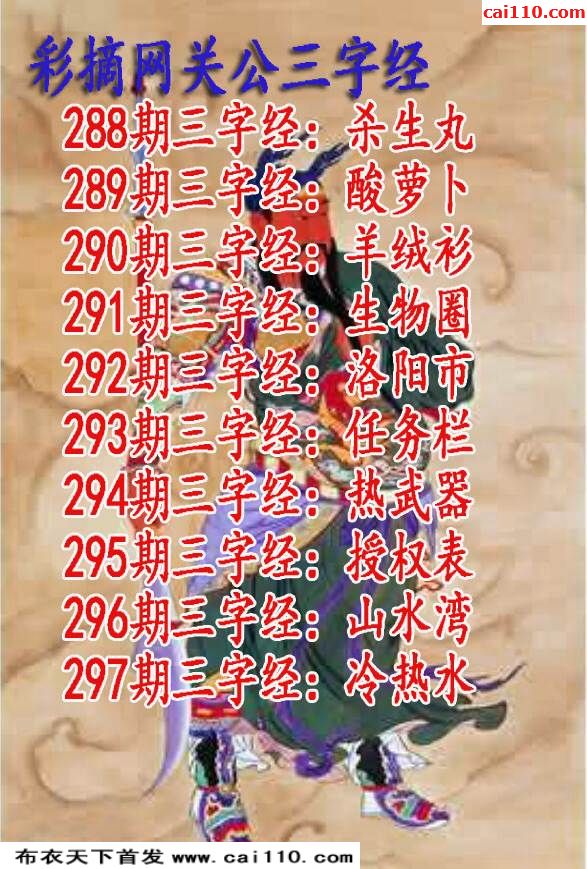 cai110.com
彩摘网关公三字经
288期三字经：杀生丸
289期三字经：酸萝卜
290期三字经：羊绒衫
291期三字经：生物圈
292期三字经：洛阳市
293期三字经：任务栏
294期三字经：热武器
295期三字经：授权表
296期三字经：山水湾
297期三字经：冷热水
布衣天下首发 www.cai110.com